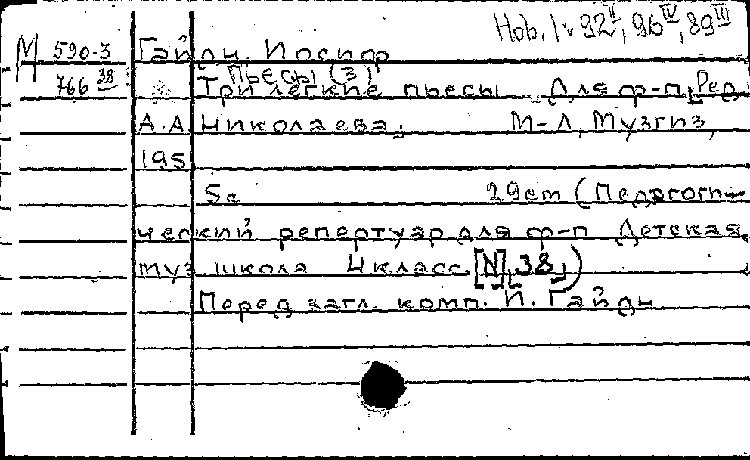 Hob. IV 92 II, 96 IV, 89 III
М 590-3 Гайдн, Иосиф
Пьесы (3)
766 38 Три легкие пьесы Для ф-п, Ред.
А.А. Николаева. М-Л, Музгиз,
195
5с 29cm (Педагоги-
ческий репертуар для ф-п Детская
муз школа 4 класс [N, 38,)
Перед загл. комп. И. Гайдн